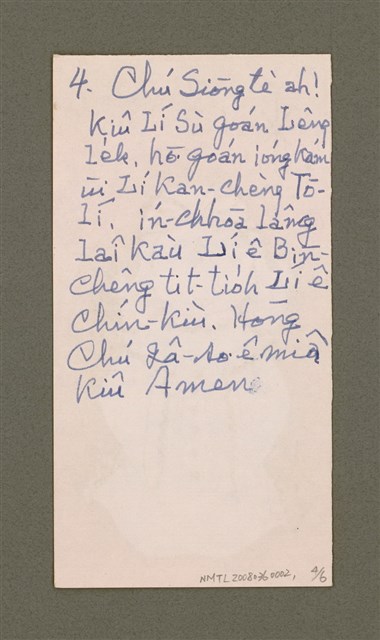 4. Chú Siōngtè ah!
Kiû Lí Sù goán Lêng
Le̍k, hō͘ goán ióngkám
ūi Lí Kan-chèng Tō-
Lí, ín-chhōa lâng
Laî Kàu Lí ê Bīn-
Chêng tit-tio̍h Lí ê
Chín-kiù. Hōng
Chú Iâ-so͘ ê miâ
Kiû Amen
NMTL20080360002, 4/6